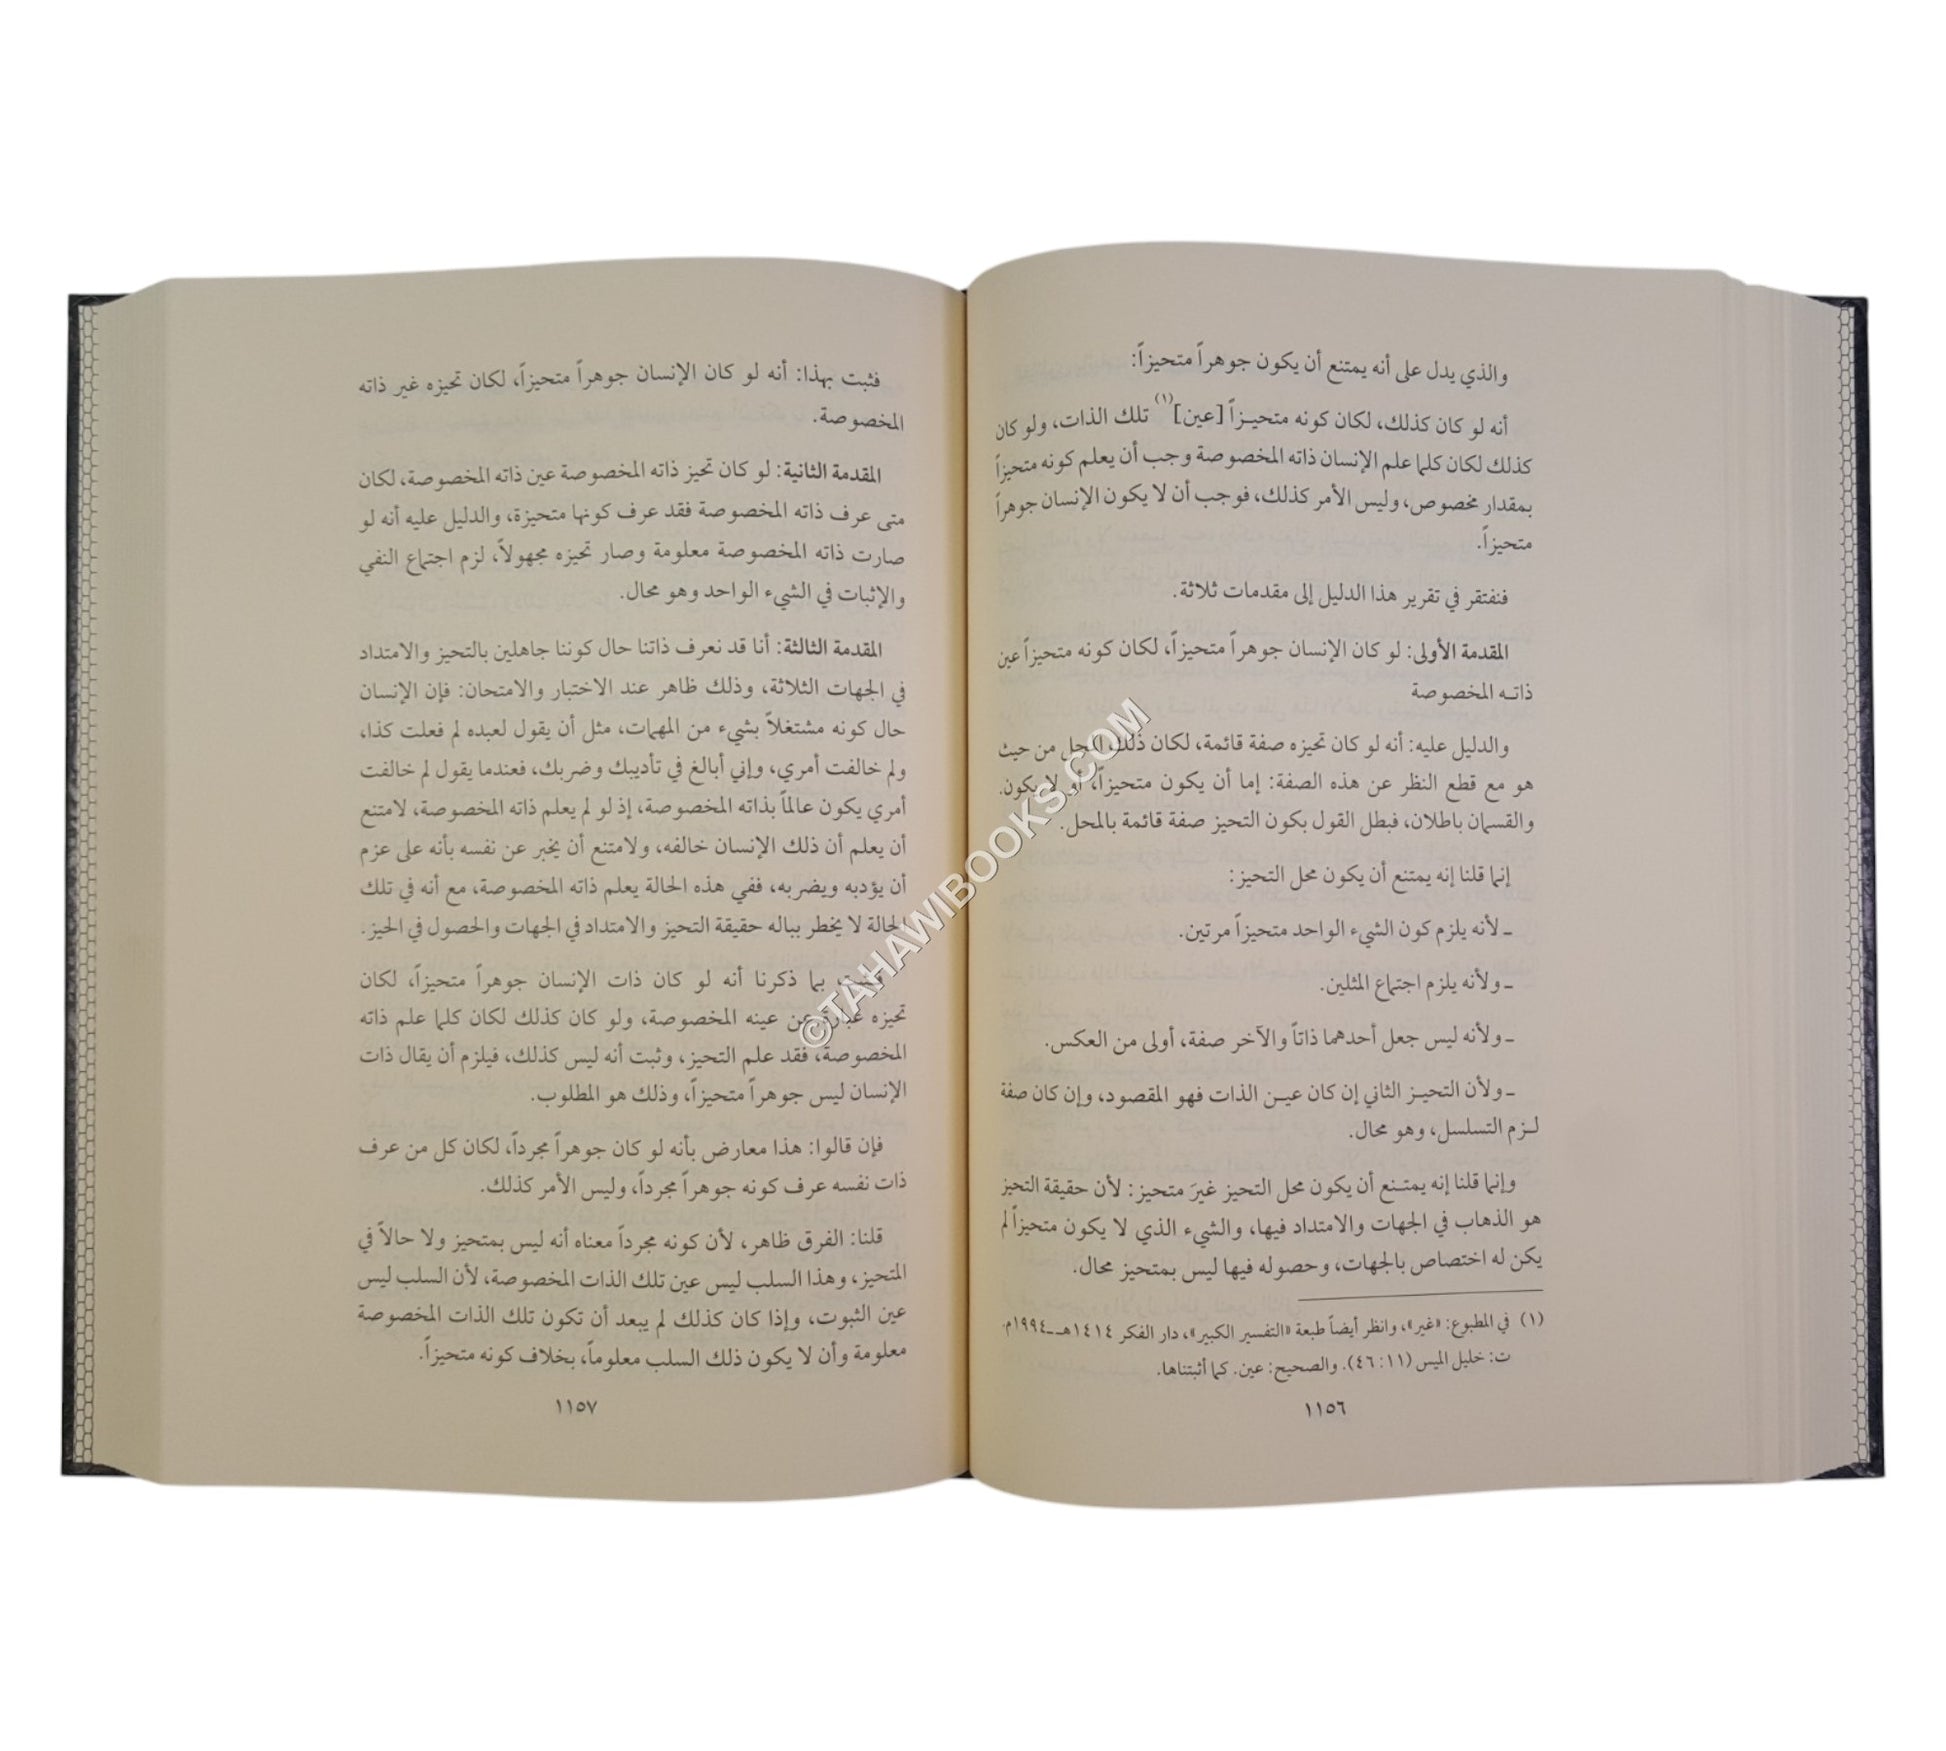 والذي يدل على أنه يمتنع أن يكون جوهراً متحيزاً:
أنه لو كان كذلك، لكان كونه متحيـزاً [عين](١) تلك الذات، ولو كان
كذلك لكان كلما علم الإنسان ذاته المخصوصة وجب أن يعلم كونه متحيزاً
بمقدار مخصوص، وليس الأمر كذلك، فوجب أن لا يكون الإنسان جوهراً
متحيزاً.
فنفتقر في تقرير هذا الدليل إلى مقدمات ثلاثة.
المقدمة الأولى: لو كان الإنسان جوهراً متحيزاً، لكان كونه متحيزاً عين
ذاتـه المخصوصة
والدليل عليه: أنه لو كان تحيزه صفة قائمة، لكان ذلك المحل من حيث
هو مع قطع النظر عن هذه الصفة: إما أن يكون متحيزاً، أو لا يكون.
والقسمان باطلان، فبطل القول بكون التحيز صفة قائمة بالمحل.
إنما قلنا إنه يمتنع أن يكون محل التحيز:
ـ لأنه يلزم كون الشيء الواحد متحيزاً مرتين.
ـ ولأنه يلزم اجتماع المثلين.
ـ ولأنه ليس جعل أحدهما ذاتاً والآخر صفة، أولى من العكس.
ـ ولأن التحيـز الثاني إن كان عيـن الذات فهو المقصود، وإن كان صفة
لـزم التسلسل، وهو محال.
وإنما قلنا إنه يمتـنع أن يكون محل التحيز غيرَ متحيز: لأن حقيقة التحيز
هو الذهاب في الجهات والامتداد فيها، والشيء الذي لا يكون متحيزاً لم
يكن له اختصاص بالجهات، وحصوله فيها ليس بمتحيز محال.
(١) في المطبوع: «غير»، وانظر أيضاً طبعة «التفسير الكبير»، دار الفكر ١٤١٤هـ-١٩٩٤م.
ت: خليل الميس (١١: ٤٦). والصحيح: عين. كما أثبتناها.
١١٥٦
فثبت بهذا: أنه لو كان الإنسان جوهراً متحيزاً، لكان تحيزه غير ذاته
المخصوصة.
المقدمة الثانية: لو كان تحيز ذاته المخصوصة عين ذاته المخصوصة، لكان
متى عرف ذاته المخصوصة فقد عرف كونها متحيزة، والدليل عليه أنه لو
صارت ذاته المخصوصة معلومة وصار تحيزه مجهولاً، لزم اجتماع النفي
والإثبات في الشيء الواحد وهو محال.
المقدمة الثالثة: أنا قد نعرف ذاتنا حال كوننا جاهلين بالتحيز والامتداد
في الجهات الثلاثة، وذلك ظاهر عند الاختبار والامتحان: فإن الإنسان
حال كونه مشتغلاً بشيء من المهمات، مثل أن يقول لعبده لم فعلت كذا،
ولم خالفت أمري، وإني أبالغ في تأديبك وضربك، فعندما يقول لم خالفت
أمري يكون عالماً بذاته المخصوصة، إذ لو لم يعلم ذاته المخصوصة، لامتنع
أن يعلم أن ذلك الإنسان خالفه، ولامتنع أن يخبر عن نفسه بأنه على عزم
أن يؤدبه ويضربه، ففي هذه الحالة يعلم ذاته المخصوصة، مع أنه في تلك
الحالة لا يخطر بباله حقيقة التحيز والامتداد في الجهات والحصول في الحيز.
فثبت بما ذكرنا أنه لو كان ذات الإنسان جوهراً متحيزاً، لكان
تحيزه عبارة عن عينه المخصوصة، ولو كان كذلك لكان كلما علم ذاته
المخصوصة، فقد علم التحيز، وثبت أنه ليس كذلك، فيلزم أن يقال ذات
الإنسان ليس جوهراً متحيزاً، وذلك هو المطلوب.
فإن قالوا: هذا معارض بأنه لو كان جوهراً مجرداً، لكان كل من عرف
ذات نفسه عرف كونه جوهراً مجرداً، وليس الأمر كذلك.
قلنا: الفرق ظاهر، لأن كونه مجرداً معناه أنه ليس بمتحيز ولا حالاً في
المتحيز، وهذا السلب ليس عين تلك الذات المخصوصة، لأن السلب ليس
عين الثبوت، وإذا كان كذلك لم يبعد أن تكون تلك الذات المخصوصة
معلومة وأن لا يكون ذلك السلب معلوماً، بخلاف كونه متحيزاً.
١١٥٧
©TAHAWIBOOKS.COM